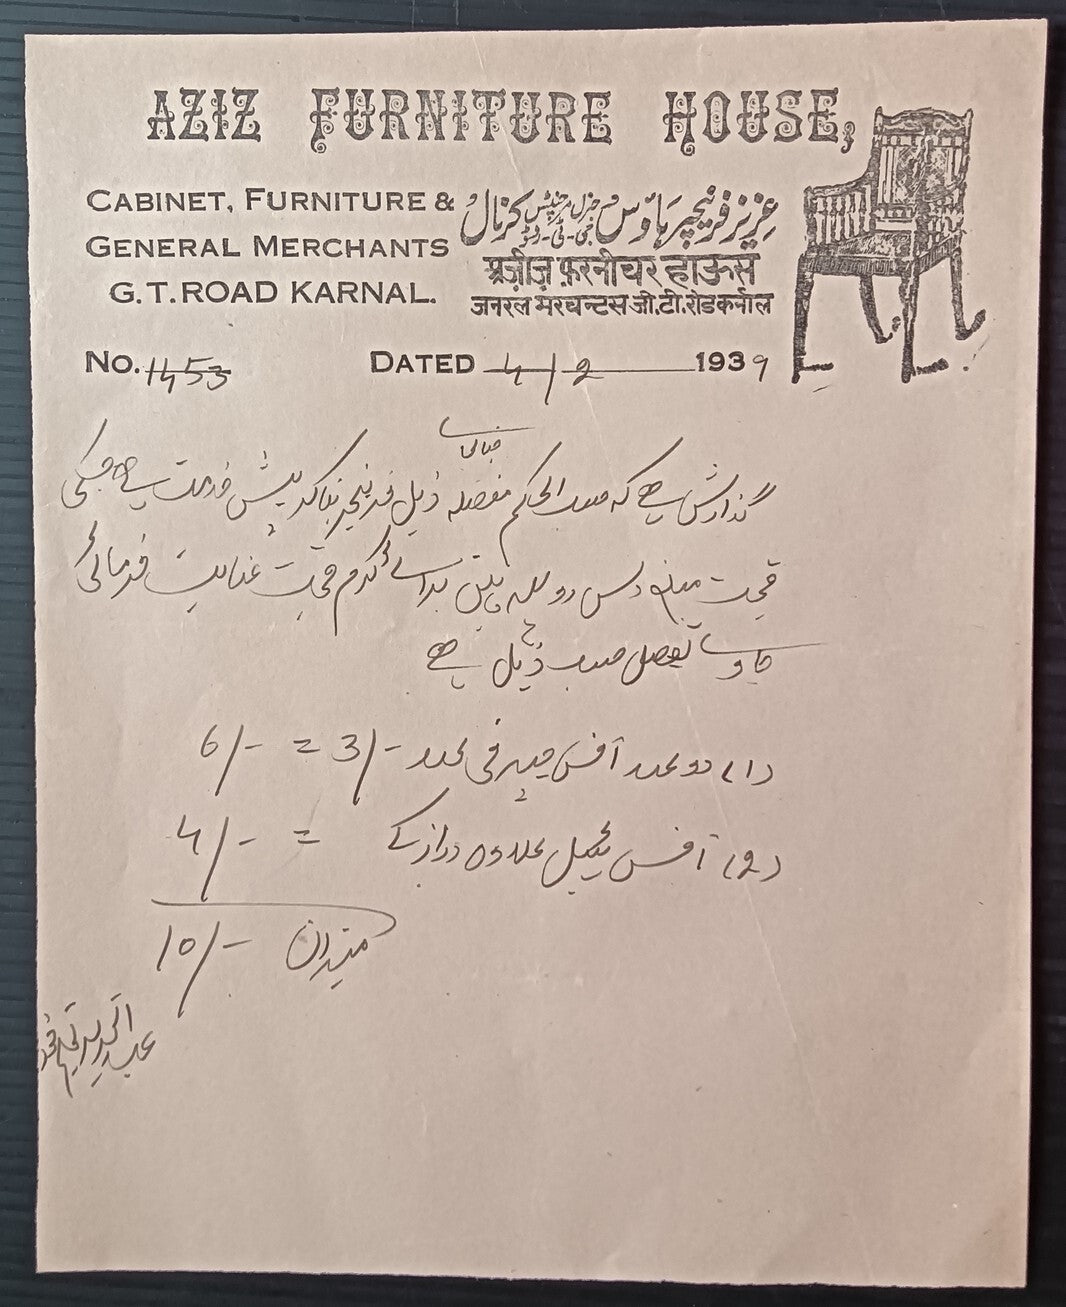 AZIZ FURNITURE HOUSE,
CABINET, FURNITURE &
GENERAL MERCHANTS
G.T. ROAD KARNAL.
عزیز فرنیچر ہاؤس جنرل مرچنٹس جی۔ٹی۔روڈ کرنال
अज़ीज़ फ़रनीचर हाऊस
जनरल मरचन्टस जी.टी.रोड कर्नाल
No. 1453
DATED 4/2 1939
جنابعالی
گذارش ہے کہ حسب الحکم مفصلہ ذیل فرنیچر بناکر پیش خدمت ہے جسکی
قیمت مبلغ دس روپیہ ہیں برائے کرم قیمت عنایت فرمائی
جاوے تفصیل حسب ذیل ہے
(1) دو عدد آفس چیر فی عدد 3/- = 6/-
(2) آفس ٹیبل علاوہ دراز کے = 4/-
میزان 10/-